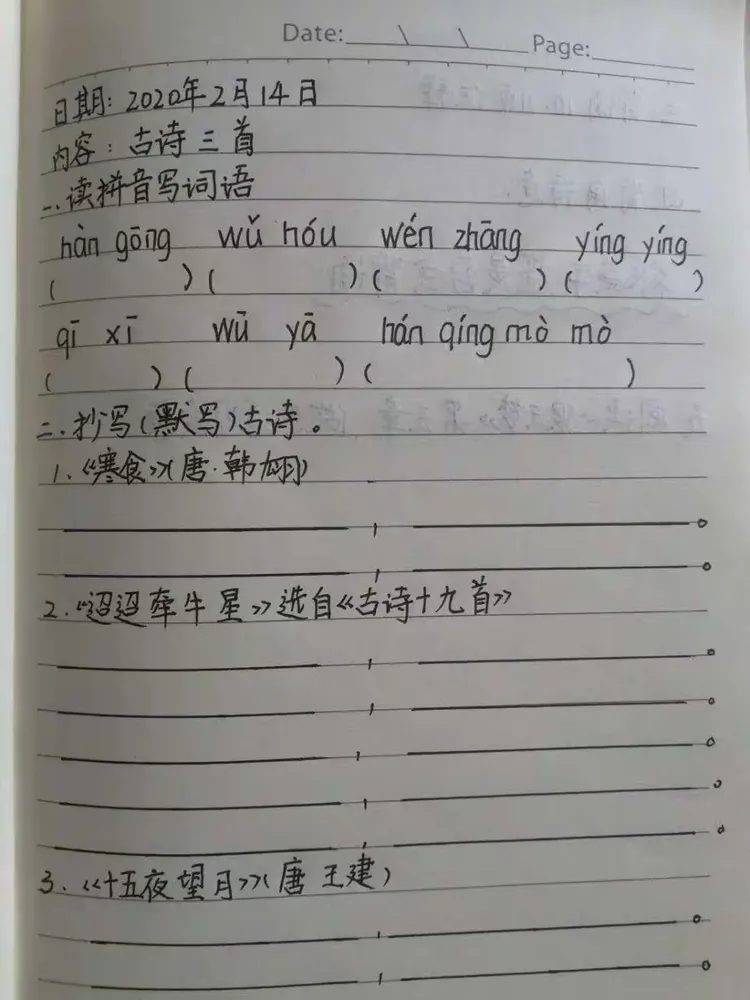 Date:____\____\____ Page:______
日期: 2020年2月14日
内容: 古诗三首
一、读拼音写词语
hàn gōng wǔ hóu wén zhāng yíng yíng
( ) ( ) ( ) ( )
qī xī wū yā hán qíng mò mò
( ) ( ) ( )
二、抄写(默写)古诗。
1、《寒食》(唐·韩翃)
, 。
, 。
2、《迢迢牵牛星》选自《古诗十九首》
, 。
, 。
, 。
, 。
, 。
3、《十五夜望月》(唐 王建)
, 。
, 。